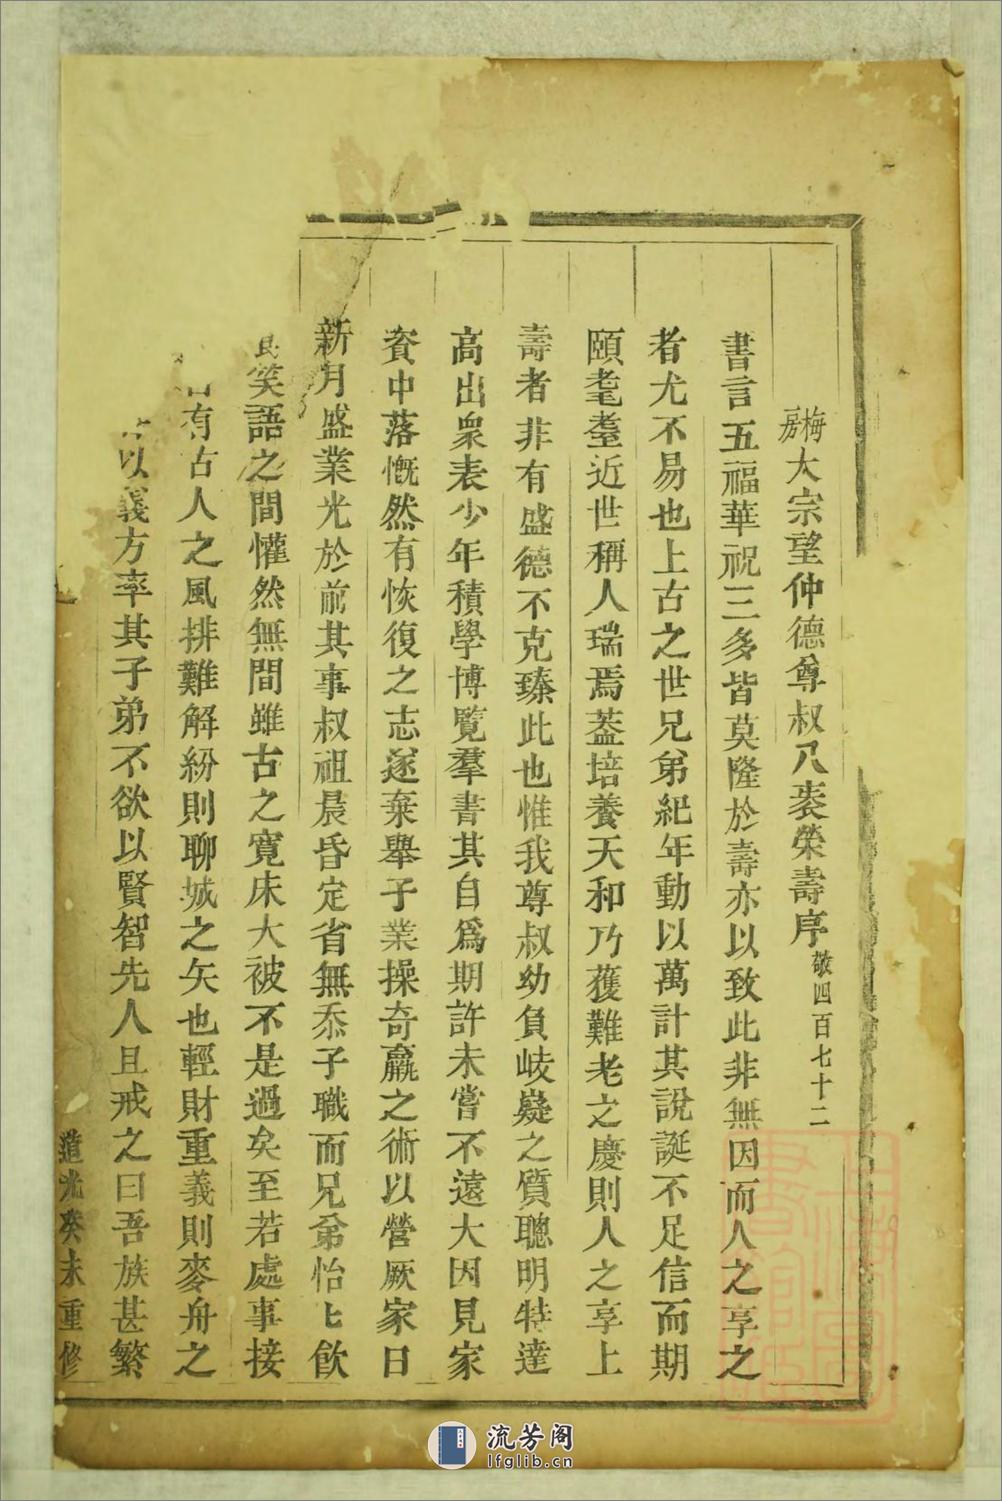 梅房大宗望仲德尊叔八袠榮壽序敬四百七十二
書言五福華祝三多皆莫隆於壽亦以致此非無因而人之享之
者尤不易也上古之世兄弟紀年動以萬計其說誕不足信而期
頤耄耋近世稱人瑞焉蓋培養天和乃獲難老之慶則人之享上
壽者非有盛德不克臻此也惟我尊叔幼負岐嶷之質聰明特達
高出衆表少年積學博覽羣書其自爲期許未嘗不遠大因見家
資中落慨然有恢復之志遂棄舉子業操奇贏之術以營厥家日
新月盛業光於前其事叔祖晨昏定省無忝子職而兄弟怡匕飲
笑語之間懽然無間雖古之寬床大被不是過矣至若處事接
有古人之風排難解紛則聊城之矢也輕財重義則麥舟之
以義方率其子弟不欲以賢智先人且戒之曰吾族甚繁
道光癸未重修
流芳阁
lfglib.cn